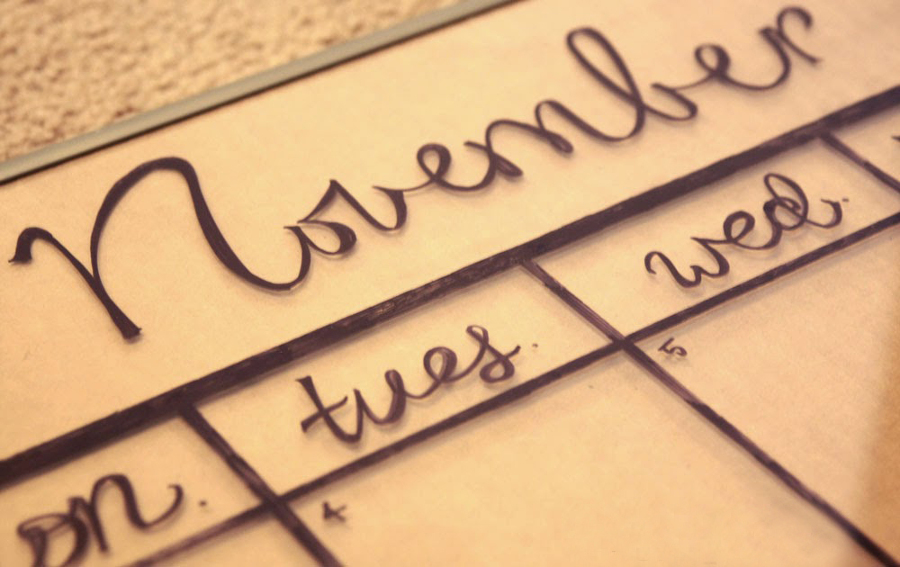 November
on. tues. wed.
4 5